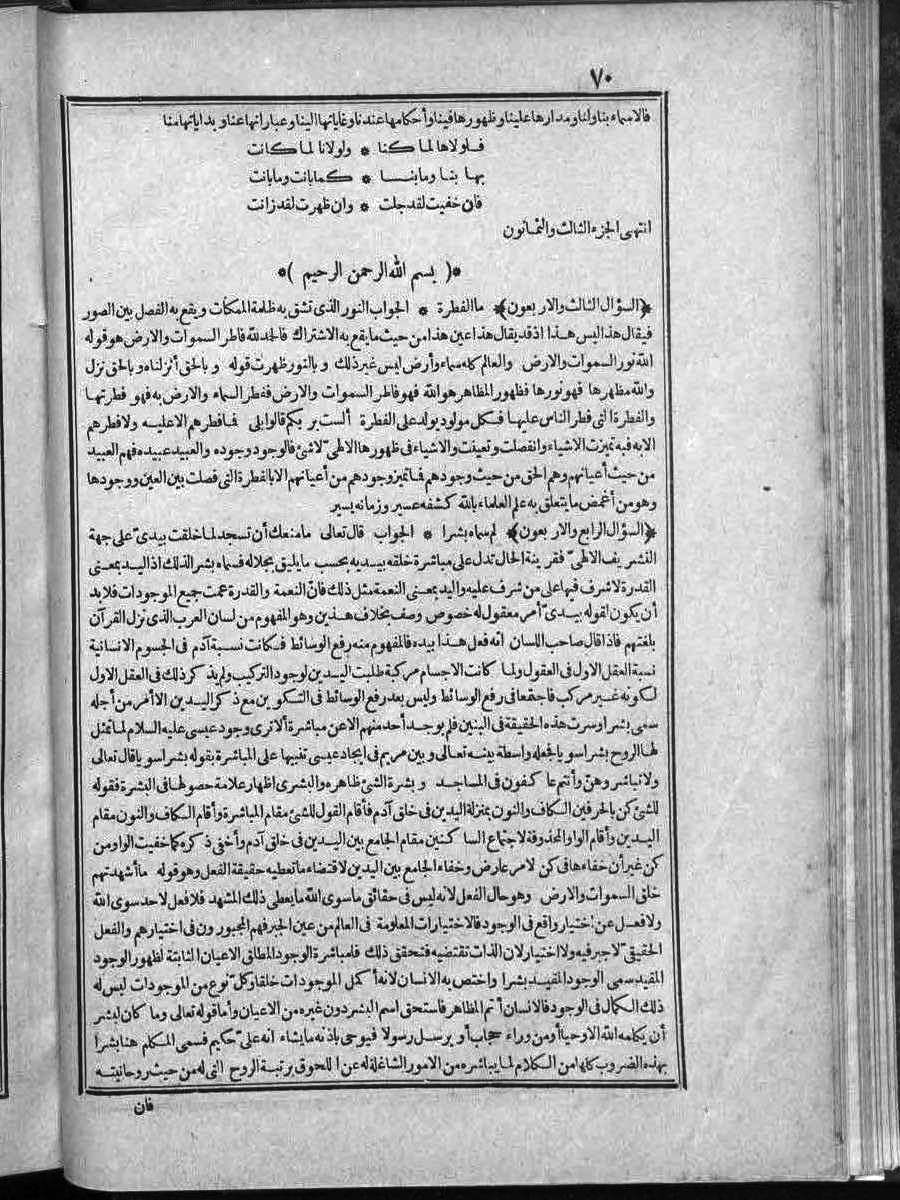 ٧٠
فالاسماء بنا ولنا ومدارها علينا وظهورها فينا وأحكامها عندنا وغاياتها الينا وعباراتها عنا وبداياتها منا
فلولاها لما كنا * ولولانا لما كانت
بها بنا وما بنا * كما بانت وما بانت
فان خفيت لقد جلت * وان ظهرت لقد زانت
انتهى الجزء الثالث والثمانون
*( بسم الله الرحمن الرحيم )*
﴿السؤال الثالث والاربعون﴾ ما الفطرة * الجواب النور الذى تشق به ظلمة الممكنات ويقع به الفصل بين الصور
فيقال هذا ليس هذا اذ قد يقال هذا عين هذا من حيث ما يقع به الاشتراك فالحمد لله فاطر السموات والارض هو قوله
الله نور السموات والارض والعالم كله سماء وأرض ليس غير ذلك وبالنور ظهرت قوله وبالحق أنزلناه وبالحق نزل
والله مظهرها فهو نورها فظهور المظاهر هو الله فهو فاطر السموات والارض ففطر السماء والارض به فهو فطرتها
والفطرة التى فطر الناس عليها فكل مولود يولد على الفطرة ألست بربكم قالوا بلى فما فطرهم الا عليه ولا فطرهم
الا به فبه تميزت الاشياء وانفصلت وتعينت والاشياء فى ظهورها الالهىّ لا شئ فالوجود وجوده والعبيد عبيده فهم العبيد
من حيث أعيانهم وهم الحق من حيث وجودهم فما تميز وجودهم من أعيانهم الا بالفطرة التى فصلت بين العين ووجودها
وهو من أغمض ما يتعلق به علم العلماء بالله كشفه عسير وزمانه يسير
﴿السؤال الرابع والاربعون﴾ لم سماه بشرا * الجواب قال تعالى ما منعك أن تسجد لما خلقت بيدىّ على جهة
التشريف الالهىّ فقرينة الحال تدل على مباشرة خلقه بيديه بحسب ما يليق بجلاله فسماه بشرا لذلك اذ اليد بمعنى
القدرة لا شرف فيها على من شرف عليه واليد بمعنى النعمة مثل ذلك فانّ النعمة والقدرة عمت جميع الموجودات فلا بد
أن يكون لقوله بيدىّ أمر معقول له خصوص وصف بخلاف هذين وهو المفهوم من لسان العرب الذى نزل القرآن
بلغتهم فاذا قال صاحب اللسان انه فعل هذا بيده فالمفهوم منه رفع الوسائط فكانت نسبة آدم فى الجسوم الانسانية
نسبة العقل الاول فى العقول ولما كانت الاجسام مركبة طلبت اليدين لوجود التركيب ولم يذكر ذلك فى العقل الاول
لكونه غير مركب فاجتمعا فى رفع الوسائط وليس بعد رفع الوسائط فى التكوين مع ذكر اليدين الا الامر من أجله
سمى بشرا وسرت هذه الحقيقة فى البنين فلم يوجد أحد منهم الا عن مباشرة ألا ترى وجود عيسى عليه السلام لما تمثل
لها الروح بشرا سويا فجعله واسطة بينه تعالى وبين مريم فى ايجاد عيسى تنبيها على المباشرة بقوله بشرا سويا قال تعالى
ولا تباشروهنّ وأنتم عاكفون فى المساجد وبشرة الشئ ظاهره والبشرى اظهار علامة حصولها فى البشرة فقوله
للشئ كن بالحرفين الكاف والنون بمنزلة اليدين فى خلق آدم فأقام القول للشئ مقام المباشرة وأقام الكاف والنون مقام
اليدين وأقام الواو المحذوفة لاجتماع الساكنين مقام الجامع بين اليدين فى خلق آدم وأخفى ذكره كما خفيت الواو من
كن غير أن خفاءها فى كن لامر عارض وخفاء الجامع بين اليدين لاقتضاء ما تعطيه حقيقة الفعل وهو قوله ما أشهدتهم
خلق السموات والارض وهو حال الفعل لانه ليس فى حقائق ما سوى الله ما يعطى ذلك المشهد فلا فعل لاحد سوى الله
ولا فعل عن اختيار واقع فى الوجود فالاختيارات المعلومة فى العالم من عين الجبر فهم المجبورون فى اختيارهم والفعل
الحقيقىّ لا جبر فيه ولا اختيار لان الذات تقتضيه فتحقق ذلك فلمباشرة الوجود المطلق الاعيان الثابتة لظهور الوجود
المقيد سمى الوجود المقيد بشرا واختص به الانسان لانه أكمل الموجودات خلقا وكلّ نوع من الموجودات ليس له
ذلك الكمال فى الوجود فالانسان أتم المظاهر فاستحق اسم البشر دون غيره من الاعيان وأما قوله تعالى وما كان لبشر
أن يكلمه الله الا وحيا أو من وراء حجاب أو يرسل رسولا فيوحى باذنه ما يشاء انه علىّ حكيم فسمى المكلم هنا بشرا
بهذه الضروب كلها من الكلام لما يباشره من الامور الشاغلة له عن اللحوق برتبة الروح التى له من حيث روحانيته
فان